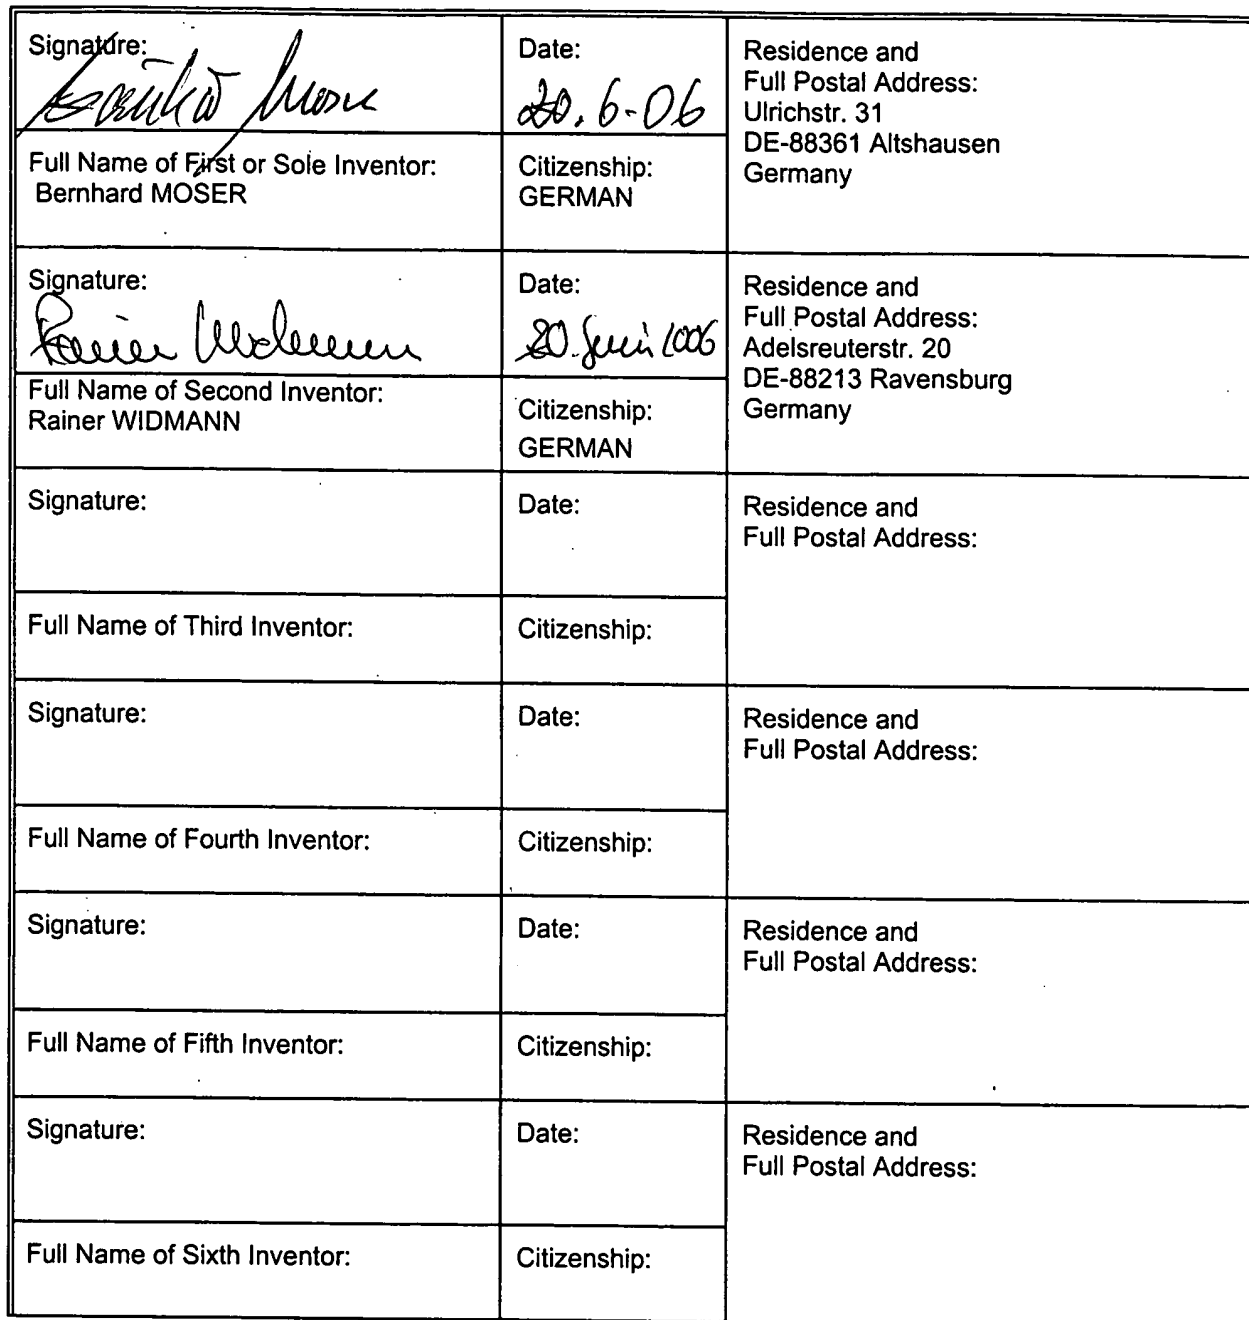 Signature:
Bernhard Moser
Date:
20. 6-06
Residence and
Full Postal Address:
Ulrichstr. 31
DE-88361 Altshausen
Germany
Full Name of First or Sole Inventor:
Bernhard MOSER
Citizenship:
GERMAN
Signature:
Rainer Widmann
Date:
20. Juni 2006
Residence and
Full Postal Address:
Adelsreuterstr. 20
DE-88213 Ravensburg
Germany
Full Name of Second Inventor:
Rainer WIDMANN
Citizenship:
GERMAN
Signature:
Date:
Residence and
Full Postal Address:
Full Name of Third Inventor:
Citizenship:
Signature:
Date:
Residence and
Full Postal Address:
Full Name of Fourth Inventor:
Citizenship:
Signature:
Date:
Residence and
Full Postal Address:
Full Name of Fifth Inventor:
Citizenship:
Signature:
Date:
Residence and
Full Postal Address:
Full Name of Sixth Inventor:
Citizenship: